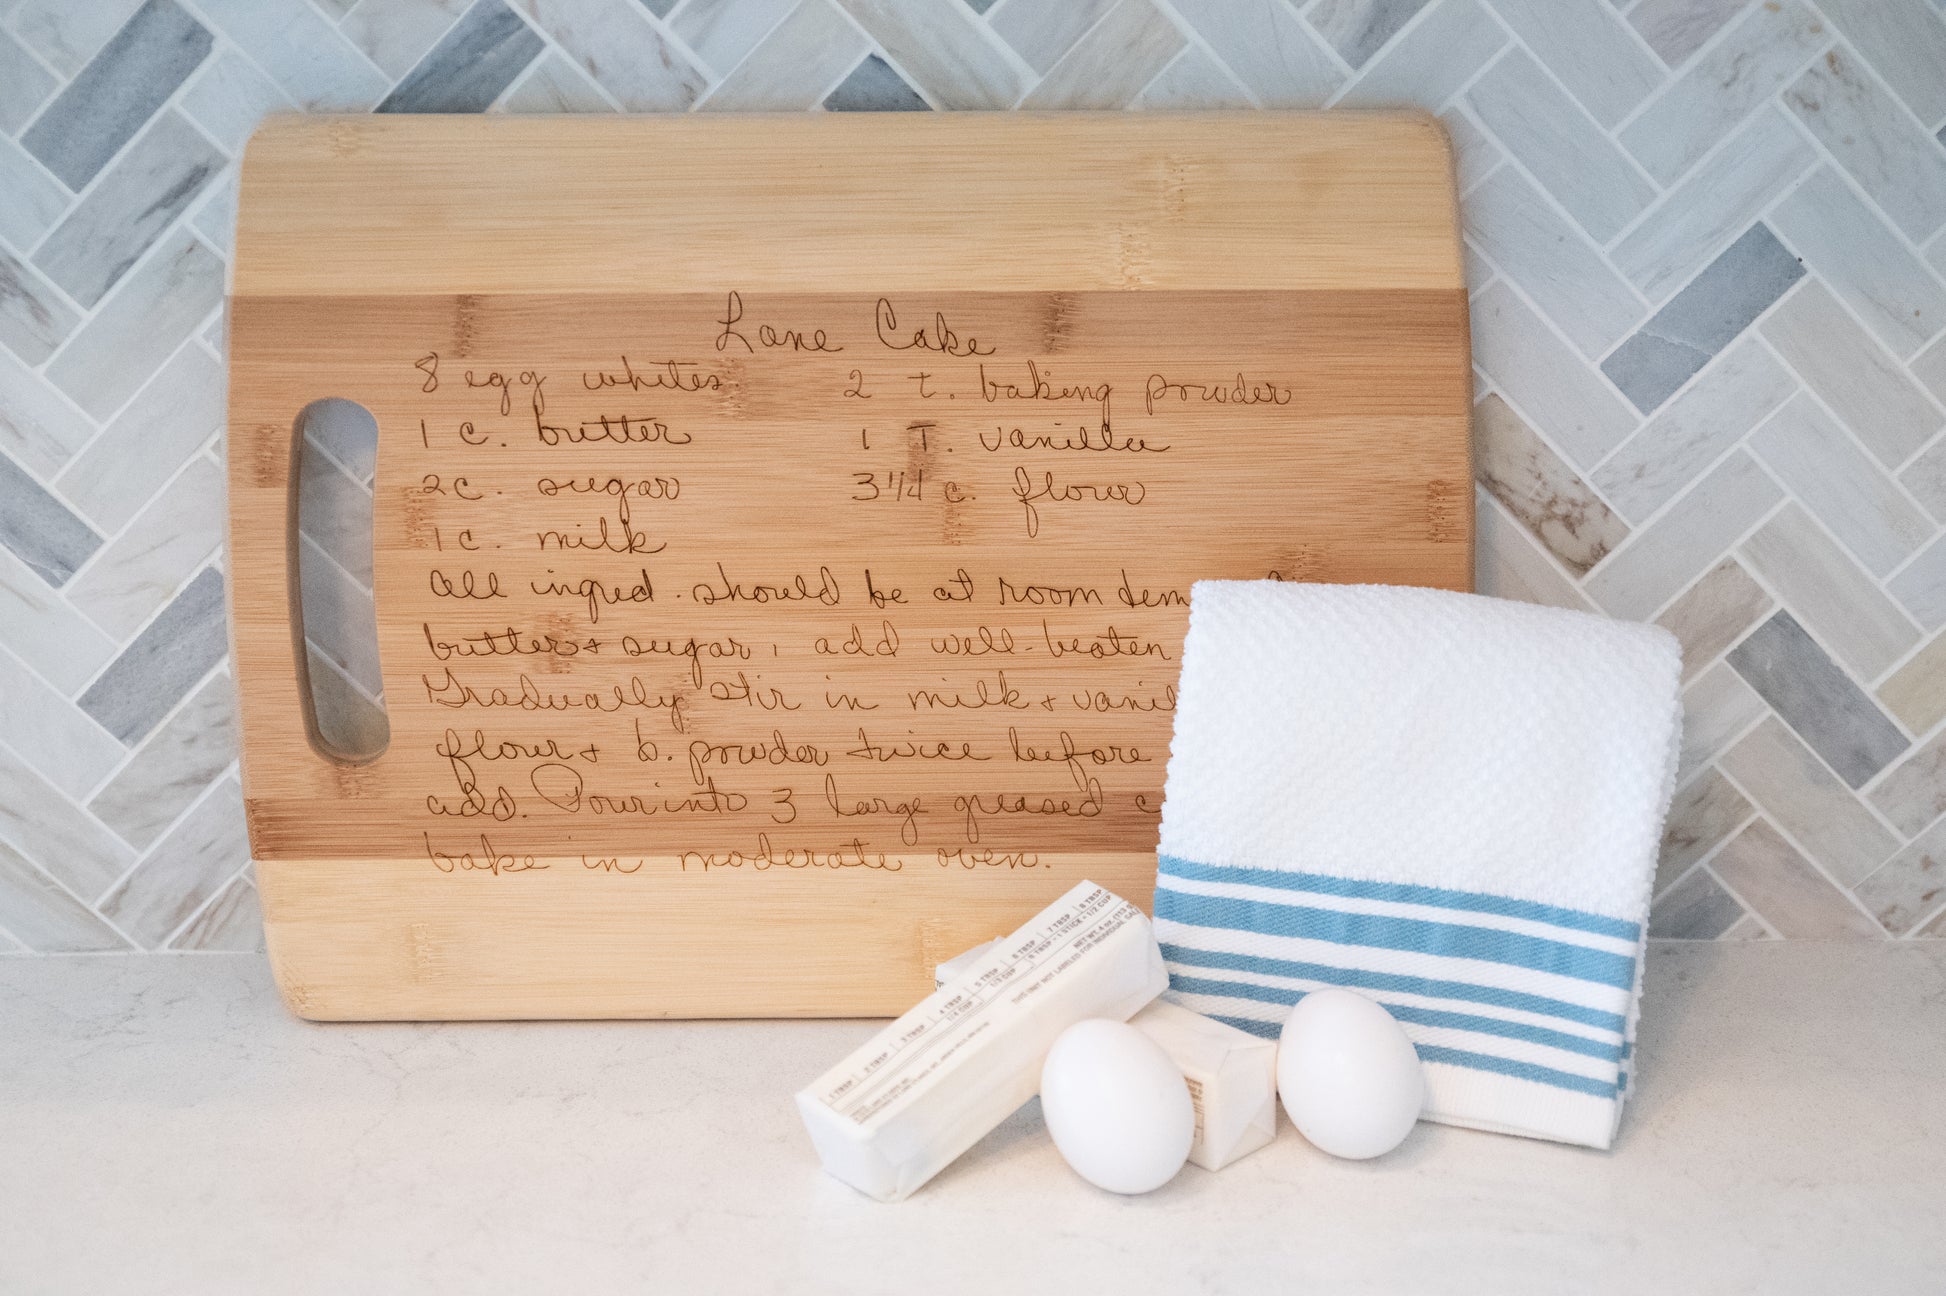 Lane Cake
8 egg whites 2 t. baking powder
1 c. butter 1 T. vanilla
2 c. sugar 3 1/4 c. flour
1 c. milk
All ingred. should be at room tem
butter + sugar, add well-beaten
Gradually stir in milk + vanil
flour + b. powder twice before
add. Pour into 3 large greased c
bake in moderate oven.
1 TBSP 2 TBSP 3 TBSP 4 TBSP 5 TBSP 6 TBSP 7 TBSP 8 TBSP
1/4 CUP 1/3 CUP 8 TBSP = 1 STICK = 1/2 CUP
NET WT. 4 oz. (113
THIS UNIT NOT LABELED FOR INDIVIDUAL SAL